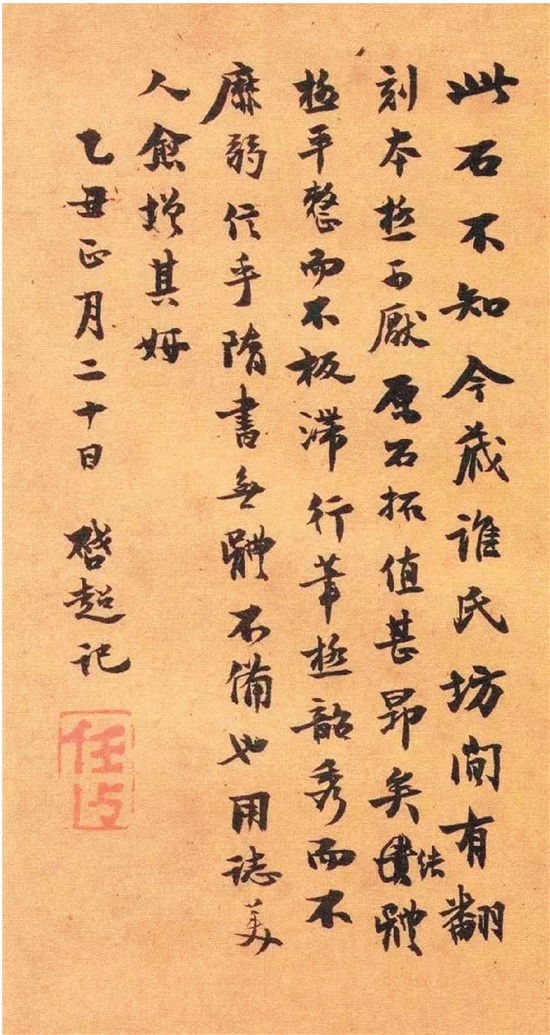 此石不知今藏誰氏坊間有翻
刻本極可厭原石拓值甚昂矣結體
極平整而不板滯行筆極韶秀而不
靡弱信乎隋書無體不備也用誌美
人愈增其妍
乙丑正月二十日 啓超記
任公